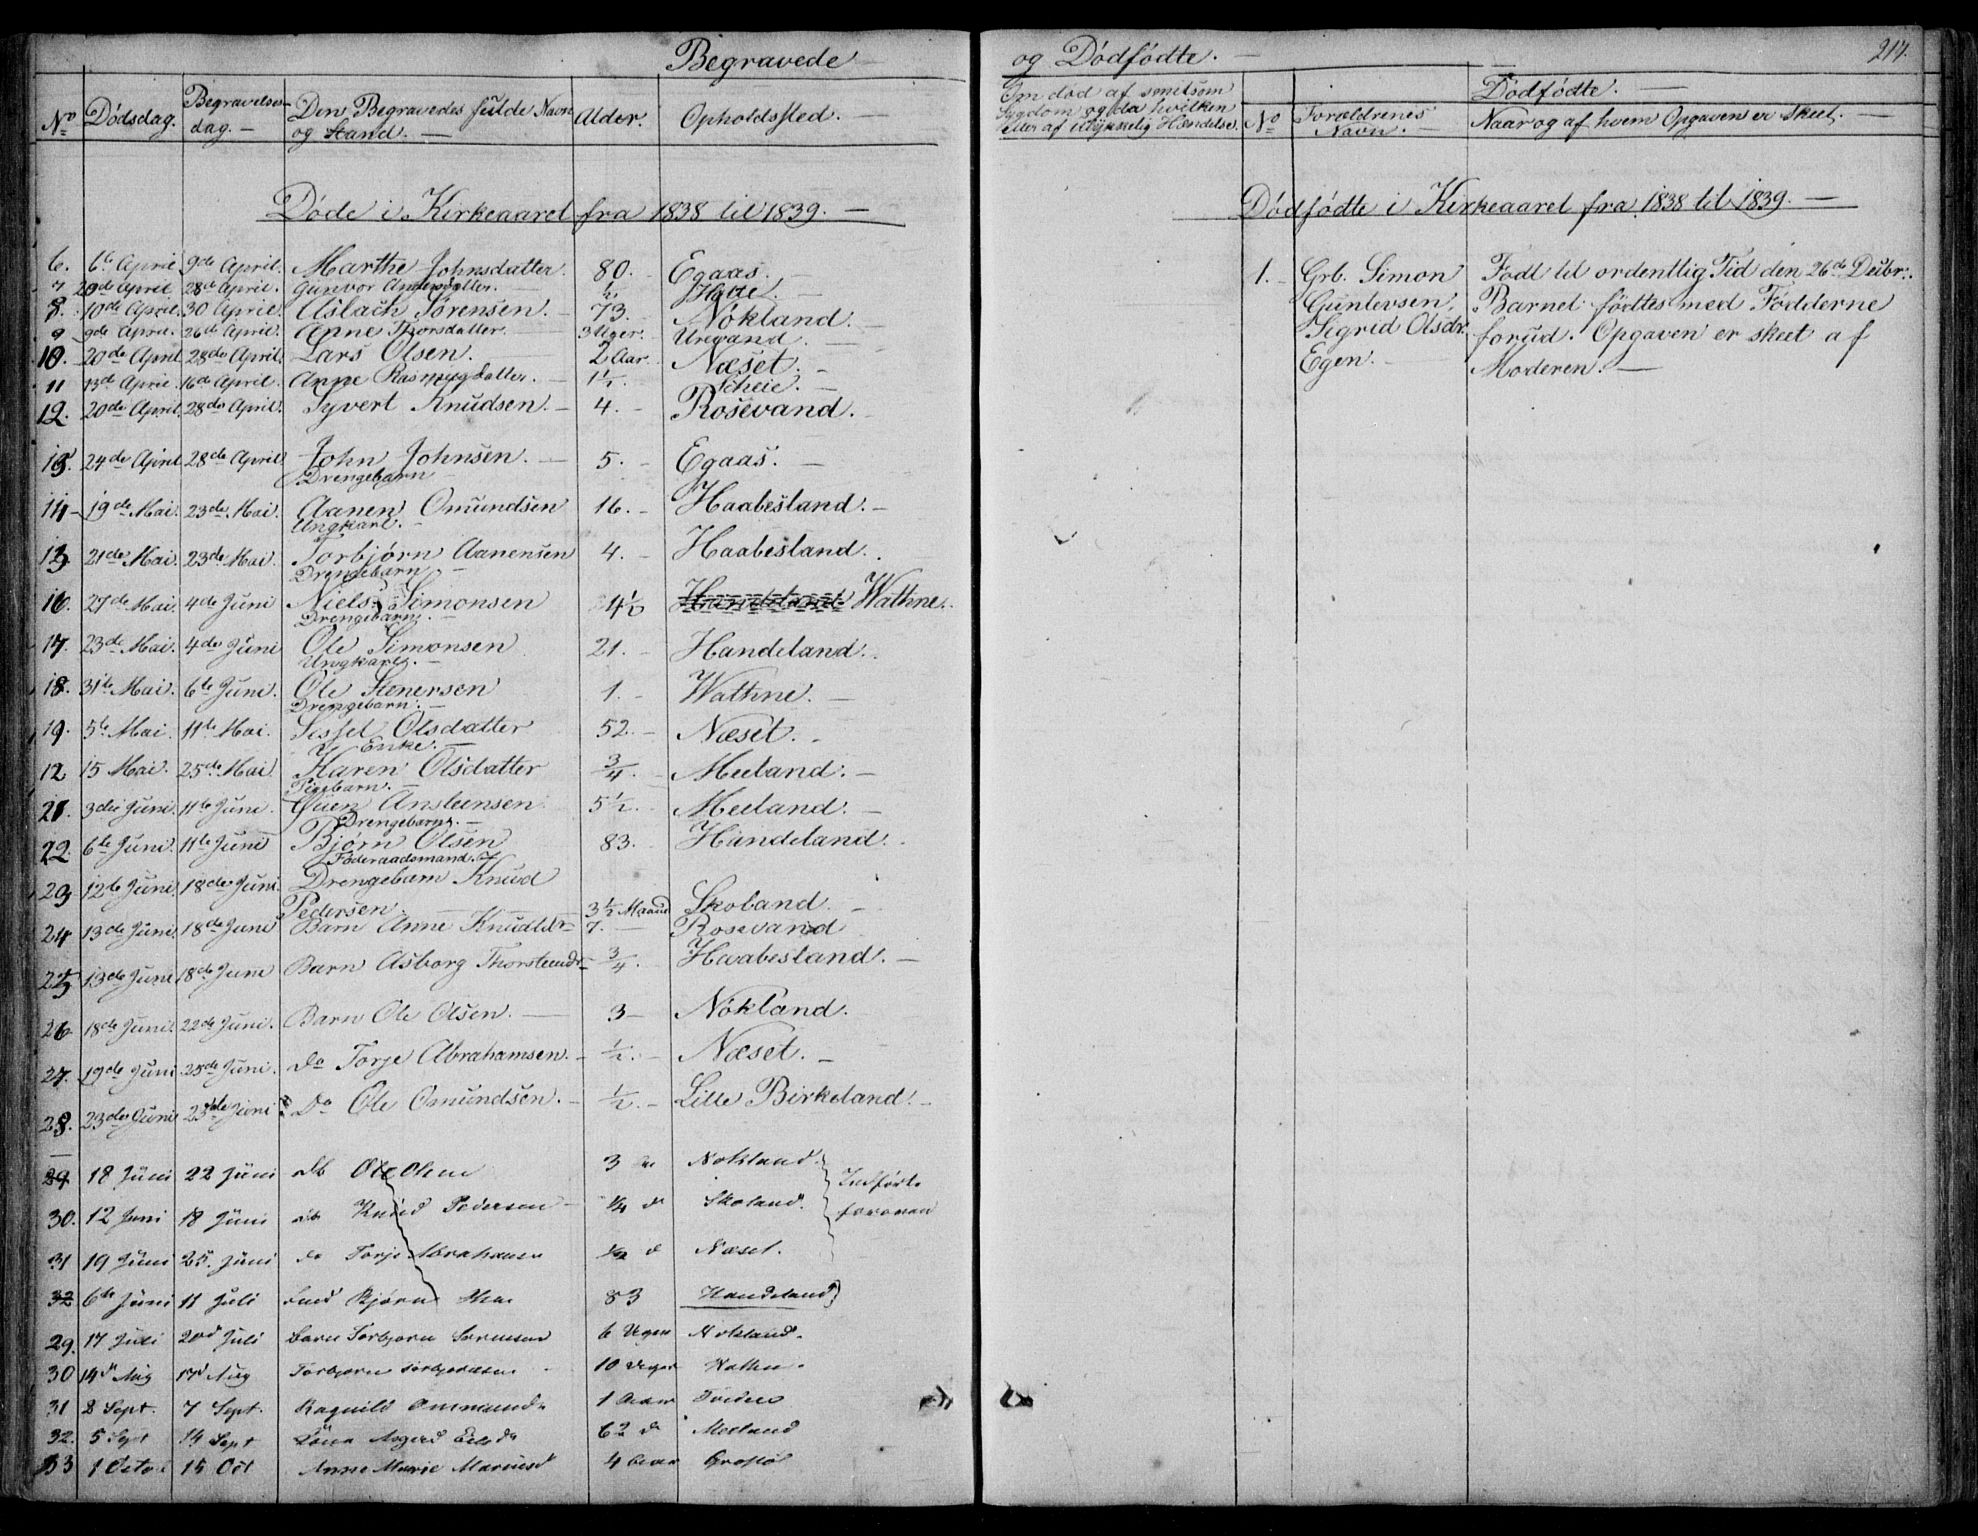 Begravede
No Dødsdag. Begravelses-dag. Den Begravedes fulde Navn og Stand. Alder. Opholdssted.
Døde i Kirkeaaret fra 1838 til 1839.
6. 6te April 9de April. Marthe Johnsdatter. 80. Egaas.
7 20de April 28de April. Gunvor Andersdatter. ½.
8. 10de April. 30 April. Aslach Sørensen. 73. Nökland.
9 9de April. 26de April. Anne Thorsdatter 3 Uger. Urevand.
10. 20de April 28de April. Lars Olsen. 2 Aar. Næset.
11 13de April 16de April. Anne Rasmusdatter. 1½. Scheie.
12. 20de April. 28de April. Syvert Knudsen. 4. Rosevand.
13. 24de April 28de April John Johnsen. 5. Egaas.
Drengebarn
14 19de Mai. 23de Mai. Aanen Omundsen 16. Haabesland.
Ungkarl.
15 21de Mai. 23de Mai. Torbjørn Aanensen 4. Haabesland.
Drengebarn
16. 27de Mai. 4de Juni Niels Simonsen 4½ Wathne.
Drengebarn.
17. 23de Mai. 4de Juni Ole Simonsen 21. Handeland.
Ungkarl.
18. 31te Mai. 6te Juni. Ole Stenersen 1. Wathne.
Drengebarn.
19. 5te Mai. 11te Mai. Sissel Olsdatter 52. Næset.
Enke.
12 15 Mai. 25de Mai Karen Olsdatter ¾. Meeland.
Pigebarn.
21. 3die Juni. 11te Juni. Øuen Anstensen 5½. Meeland.
Drengebarn.
22. 6te Juni. 11te Juni Bjørn Olsen 83. Handeland.
Föderaadsmand.
23 12te Juni. 18de Juni. Drengebarn Knud
Pedersen. 3½ Maaned Skoland.
24 13de Juni. 18de Juni Barn Anne Knudsdr 7. Rosevand
25 13de Juni 18de Juni Barn Asborg Thorsteinsdr ¾. Haabesland.
26 18de Juni. 22de Juni. Barn Ole Olsen. 3 Nökland.
27. 19de Juni 25de Juni. do Torje Abrahamsen. ½. Næset.
28. 23de Juni 23de Juni Do Ole Omundsen. ½. Lille Birkeland.
29 18 Juni 22 Juni db Ole Olsen 3 Nokland. Indført
30. 12 Juni 18 Juni db Knud Pedersen ¼ d Skoland. foroven
31 19 Juni 25. Juni do Torje Abrahamsen ½ d Næset.
32 6te Juni 11 Juli Bjørn Olsen 83 Handeland
29. 17 Juli 20d Juli Barn Torbjorn Sorensen 6 Uger Nokland.
30 14d Aug 17d Aug Torbjorn 10 Uger
31 2 Sept. 7 Sept. Ragnild 1
32. 5 Sept 14 Sept 62 d Meeland
33 1 Octo 15 Oct Anne Marie 4
og Dødfødte.
217.
Om død af smitsom
Sygdom og da hvilken
eller af ulykkelig Hændelse.
No Forældrenes Navn. Dødfødte. Naar og af hvem Opgaven er skeet.
Dødfødte i Kirkeaaret fra 1838 til 1839.
1. Grb. Simon Født til ordentlig Tid den 26de Decbr.
Guntevsen, Barnet fødtes med Födderne
Sigrid Olsdr. forud. Opgaven er skeet af
Egen. Moderen.